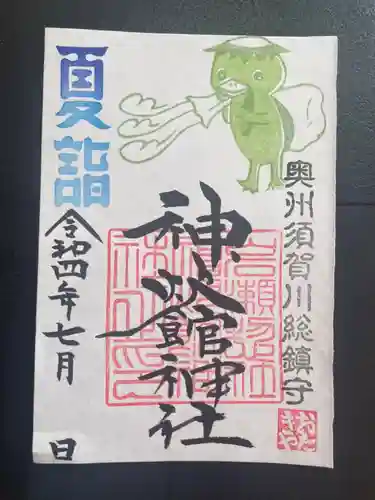 奥州須賀川総鎮守
神炊館神社
夏詣
令和四年七月 日